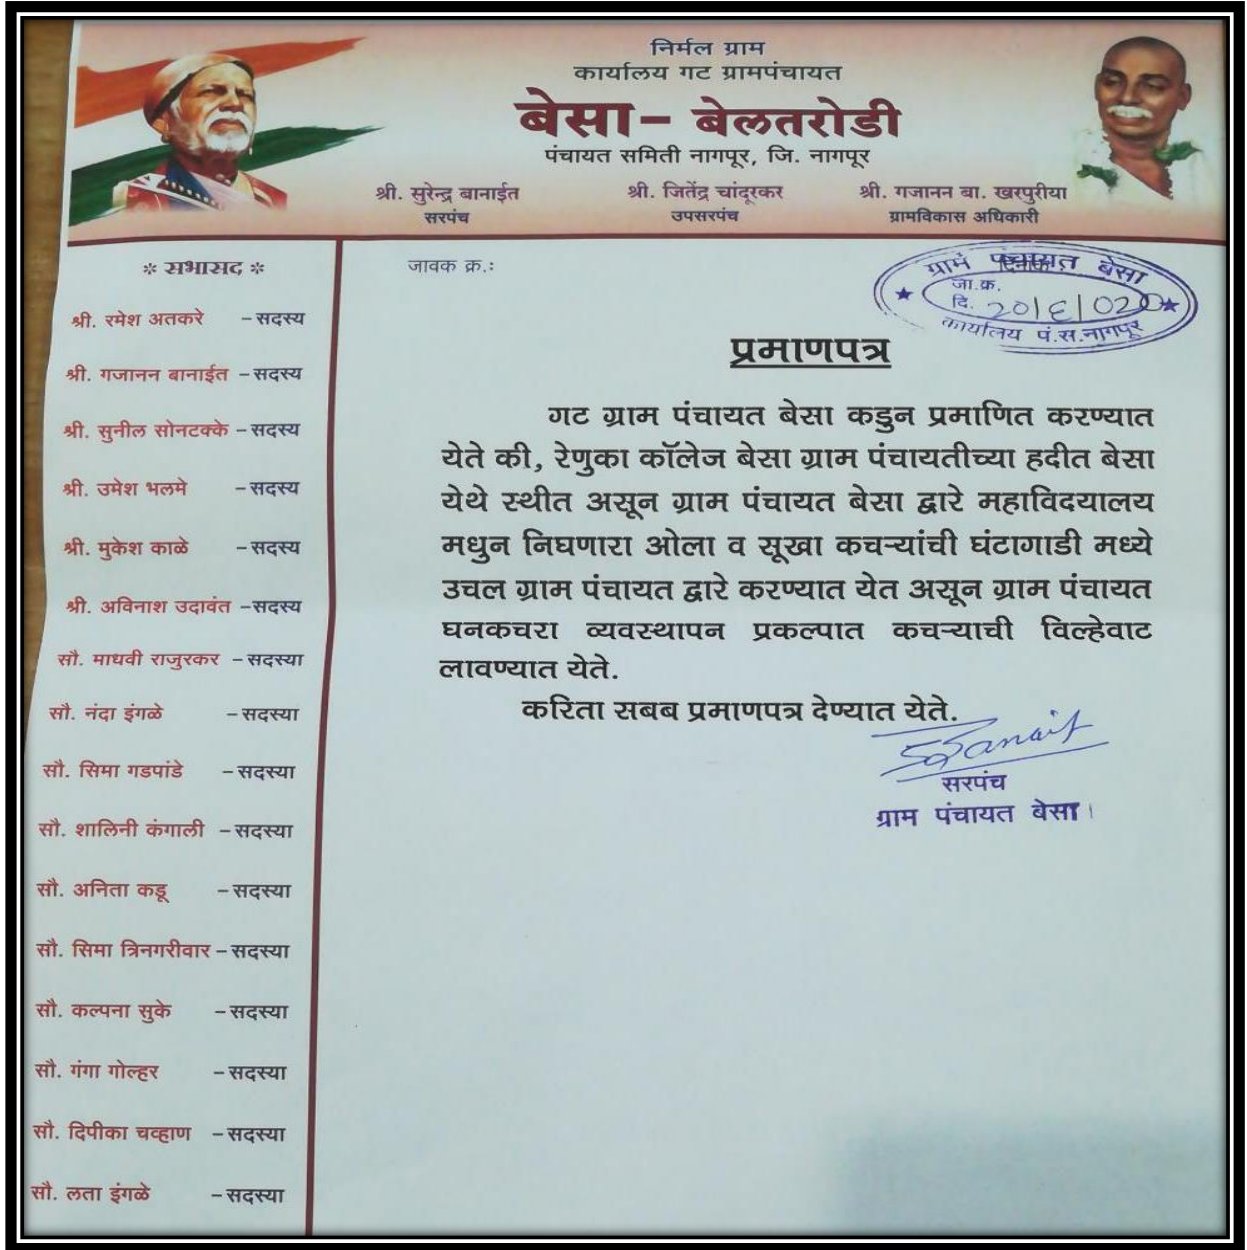 निर्मल ग्राम
कार्यालय गट ग्रामपंचायत
बेसा- बेलतरोडी
पंचायत समिती नागपूर, जि. नागपूर
श्री. सुरेन्द्र बानाईत श्री. जितेंद्र चांदूरकर श्री. गजानन बा. खरपुरीया
सरपंच उपसरपंच ग्रामविकास अधिकारी
* सभासद *
श्री. रमेश अतकरे - सदस्य
श्री. गजानन बानाईत - सदस्य
श्री. सुनील सोनटक्के - सदस्य
श्री. उमेश भलमे - सदस्य
श्री. मुकेश काळे - सदस्य
श्री. अविनाश उदावंत - सदस्य
सौ. माधवी राजुरकर - सदस्या
सौ. नंदा इंगळे - सदस्या
सौ. सिमा गडपांडे - सदस्या
सौ. शालिनी कंगाली - सदस्या
सौ. अनिता कडू - सदस्या
सौ. सिमा त्रिनगरीवार - सदस्या
सौ. कल्पना सुके - सदस्या
सौ. गंगा गोल्हर - सदस्या
सौ. दिपीका चव्हाण - सदस्या
सौ. लता इंगळे - सदस्या
जावक क्र.:
ग्राम पंचायत बेसा
जा.क्र.
दि. 20/६/020
कार्यालय पं.स.नागपूर
प्रमाणपत्र
गट ग्राम पंचायत बेसा कडुन प्रमाणित करण्यात
येते की, रेणुका कॉलेज बेसा ग्राम पंचायतीच्या हदीत बेसा
येथे स्थीत असून ग्राम पंचायत बेसा द्वारे महाविदयालय
मधुन निघणारा ओला व सूखा कचऱ्यांची घंटागाडी मध्ये
उचल ग्राम पंचायत द्वारे करण्यात येत असून ग्राम पंचायत
घनकचरा व्यवस्थापन प्रकल्पात कचऱ्याची विल्हेवाट
लावण्यात येते.
करिता सबब प्रमाणपत्र देण्यात येते.
सरपंच
ग्राम पंचायत बेसा